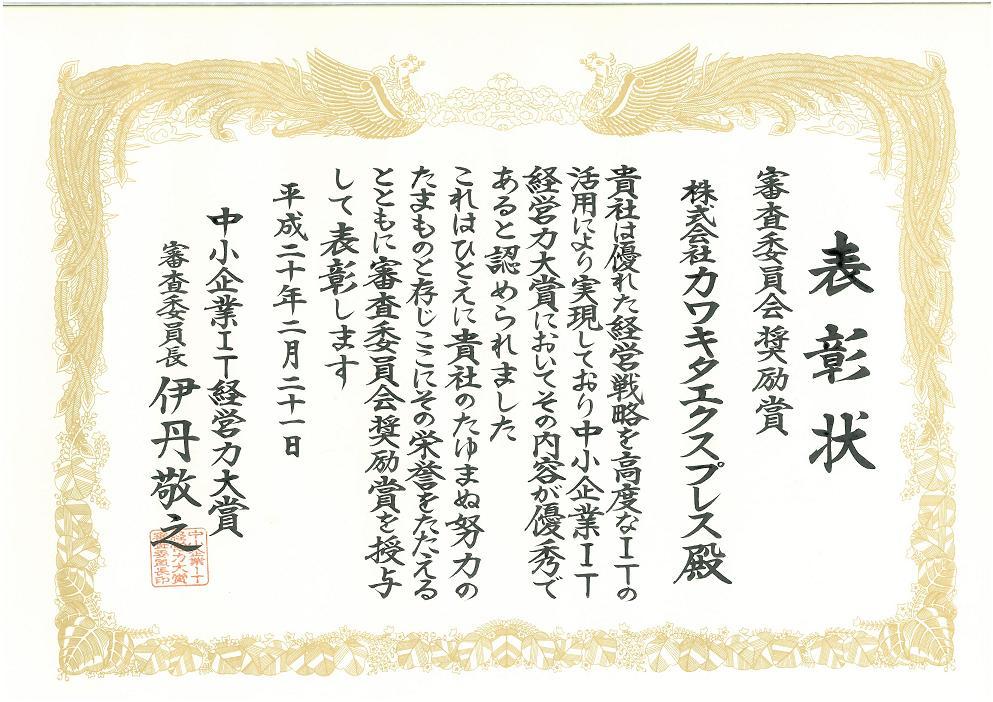 表彰状
審査委員会奨励賞
株式会社カワキタエクスプレス殿
貴社は優れた経営戦略を高度なITの
活用により実現しており中小企業IT
経営力大賞においてその内容が優秀で
あると認められました
これはひとえに貴社のたゆまぬ努力の
たまものと存じここにその栄誉をたたえる
とともに審査委員会奨励賞を授与
して表彰します
平成二十年二月二十一日
中小企業IT経営力大賞
審査委員長 伊丹敬之
中小企業IT
経営力大賞
審査委員長印